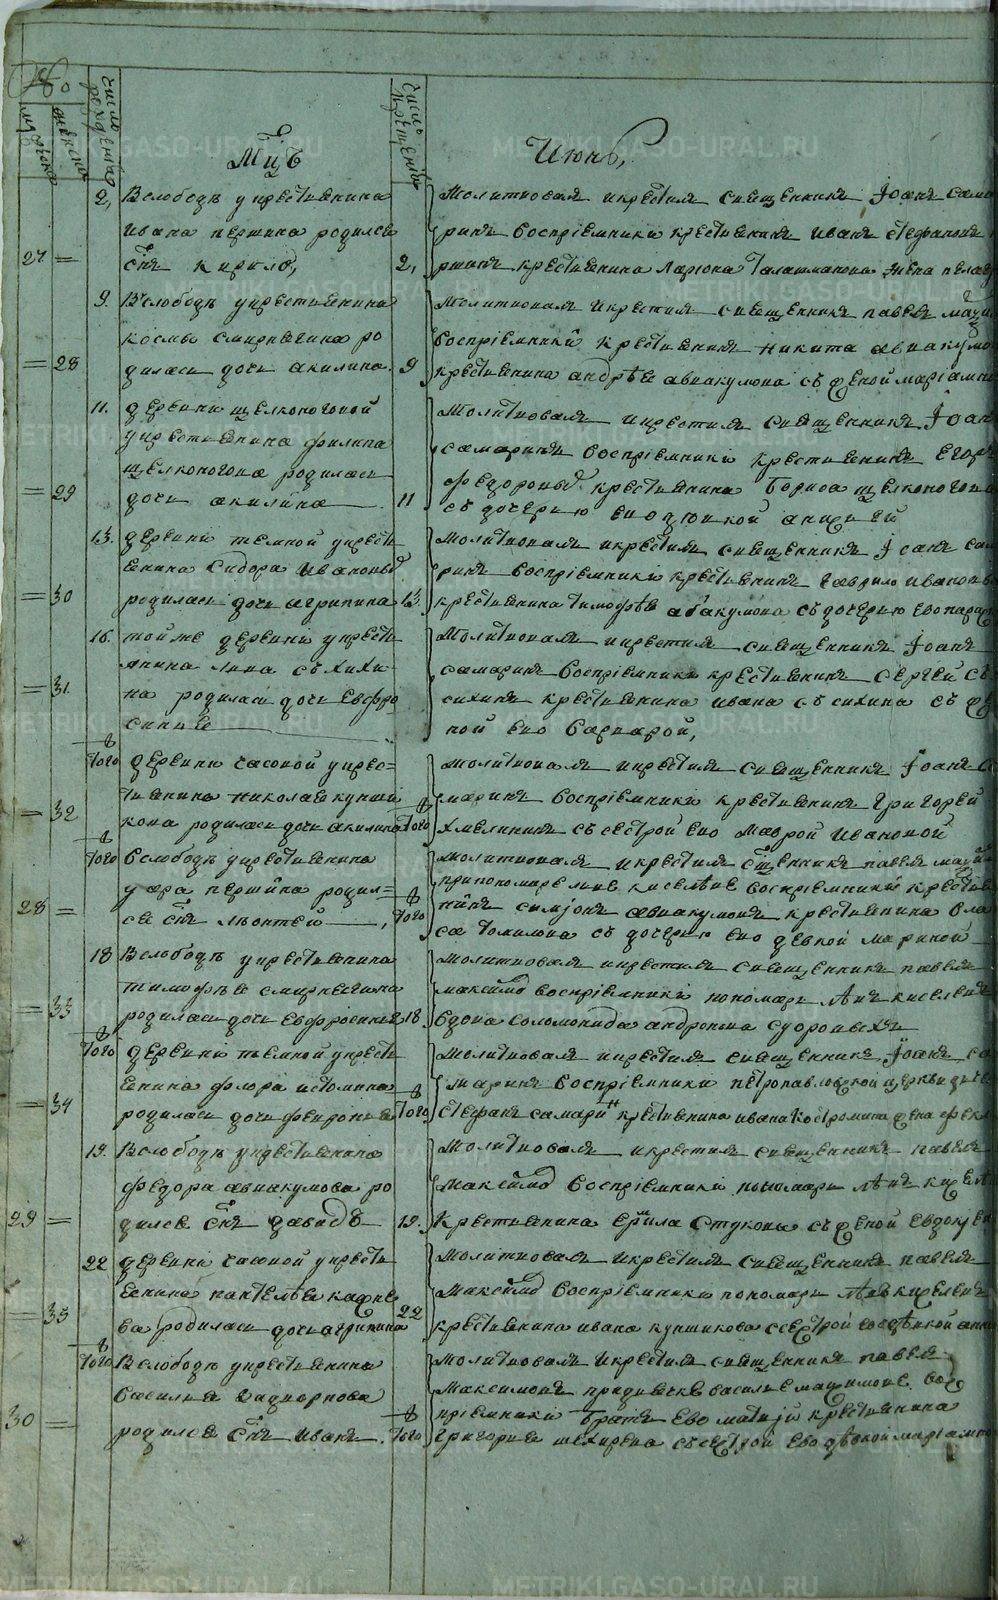 №
мужеска
женска
число рожденія
Мцъ
число крещенія
Июнь,
2,
Вслободѣ укрестьянина
Ивана першина родился
27
снъ Кирилъ,
2,
Молитвовалъ икрестилъ священникъ Іоанъ сама
ринъ воспріемники крестьянинъ Иванъ стефановъ
ршинъ крестьянина Ларіона Талашманова жена пелагѣ
9.
Вслободѣ укрестьянина
космы смирнягина ро
28
дилась дочь акилина.
9
Молитвовалъ икрестилъ священникъ павелъ
воспріемники крестьянинъ никита авакумо
крестьянина андрѣя авакумова съ женой маріамно
11.
деревни щелконоговой
укрестьянина филипа
щелконогова родилась
29
дочь акилина
11
Молитвовалъ икрестилъ священникъ Іоан
самаринъ воспріемники крестьянинъ Егоръ
федоровъ крестьянина Бориса щелконогова
съ дочерью ево дѣвкой
13.
деревни темной укрестья
янина Сидора Ивановыхъ
30
родилась дочь агрипина
13.
Молитвовалъ икрестилъ священникъ Іоанъ сам
ринъ воспріемники крестьянинъ Гаврило Ивановъ
крестьянина тимофѣя абакумова съ дочерью ево параск
16.
тойже деревни укресть
янина
31
на родилась дочь Евфро
синия
Молитвовалъ икрестилъ священникъ Іоанъ
самаринъ воспріемники крестьянинъ Сергей съ
сихинъ крестьянина ивана съсихина съ же
ной ево варварой,
того
деревни часовой укрес=
тьянина николая купши
32
кова родилась дочь акилина
того
молитвовалъ икрестилъ священникъ Іоанъ са
маринъ воспріемники крестьянинъ Григорей
Хмелининъ съсестрой ево маврой Ивановой
того
вслободѣ укрестьянина
уара першина родил=
28
ся снъ льонтей
того
молитвовалъ икрестилъ сщенникъ павелъ
воспріемники крестья
нинъ симіонъ авакумовъ крестьянина вла
са томилова съ дочерью ево дѣвкой мариной
18
Вслободѣ укрестьянина
тимофѣя смирнягина
33
родилась дочь Евфросиния
18.
молитвовалъ икрестилъ священникъ павелъ
максимов воспріемники пономарь лѣвъ киселевъ
вдова соломонида андронова суворовыхъ
того
деревни темной укресть
янина флора истомина
34
родилась дочь феврония
того
молитвовалъ икрестилъ священникъ Іоанъ са
маринъ воспріемники петропавловской церкви дьяче
стефанъ самаринъ крестьянина ивана костромина жена фекл
19.
Вслободѣ укрестьянина
федора авакумова ро
29
дился снъ давидъ
19.
Молитвовалъ икрестилъ священникъ павелъ
максимов воспріемники пономарь лѣвъ киселев
крестьянина Ермила Стукова съ женой Евдокѣе
22
деревни часовой укресть
янина пантелѣя
35
ва родилась дочь агрипина
22
молитвовалъ икрестилъ священникъ павелъ
максимов воспріемники пономарь лѣвъ киселевъ
крестьянина ивана купшикова ссестрой ево дѣвкой анн
того
Вслободѣ укрестьянина
василья задворнова
30
родился снъ Иванъ.
того
Молитвовалъ икрестилъ священникъ павелъ
максимовъ придьячке василье максимове вос
пріемники братъ ево матѳій крестьянина
григорья съсестрой ево дѣвкой маріамно
METRIKI.GASO-URAL.RU